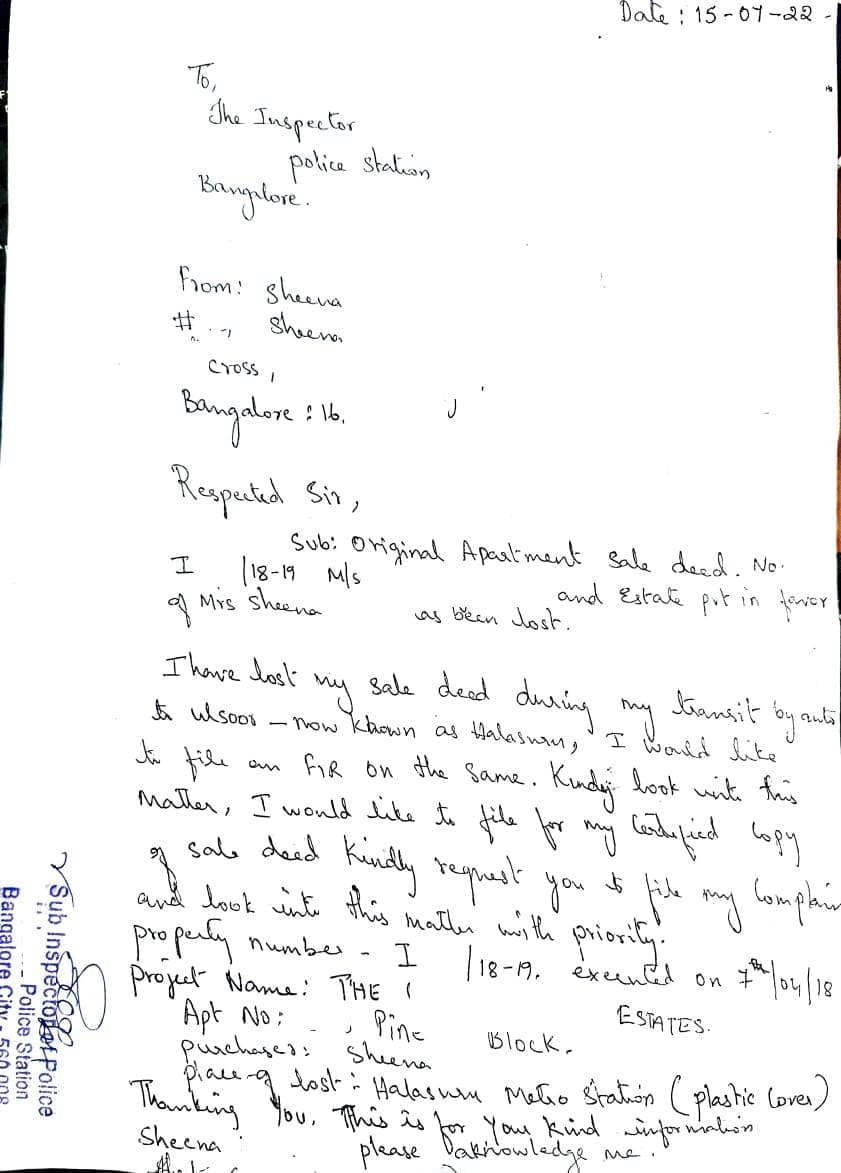 Date : 15-07-22
To,
The Inspector
police station
Bangalore.
From: Sheena
# Sheena
Cross,
Bangalore : 16.
Respected Sir,
Sub: Original Apartment Sale deed. No.
I /18-19 M/s
and Estate put in favor
of Mrs Sheena as been lost.
I have lost my sale deed during my transit by auto
to ulsoor - now known as Halasuru, I would like
to file an FIR on the same. Kindly look into this
Matter, I would like to file for my Certified Copy
of sale deed Kindly request you to file my Complain
and look into this matter with priority.
property number - I /18-19. executed on 7th/04/18
Project Name: THE ESTATES.
Apt No: , Pine Block.
purchaser: Sheena
place of lost : Halasuru Metro Station (plastic Cover)
Thanking You, This is for Your Kind information
Sheena please aknowledge me.
Sub Inspector of Police
Police Station
Bangalore City - 560 008